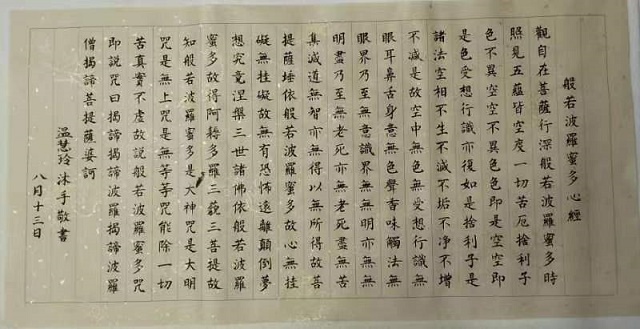 般若波羅蜜多心經
觀自在菩薩行深般若波羅蜜多時
照見五蘊皆空度一切苦厄捨利子
色不異空空不異色色即是空空即
是色受想行識亦復如是捨利子是
諸法空相不生不滅不垢不淨不增
不減是故空中無色無受想行識無
眼耳鼻舌身意無色聲香味觸法無
眼界乃至無意識界無無明亦無無
明盡乃至無老死亦無老死盡無苦
集滅道無智亦無得以無所得故菩
提薩埵依般若波羅蜜多故心無挂
礙無挂礙故無有恐怖遠離顛倒夢
想究竟涅槃三世諸佛依般若波羅
蜜多故得阿耨多羅三藐三菩提故
知般若波羅蜜多是大神咒是大明
咒是無上咒是無等等咒能除一切
苦真實不虛故說般若波羅蜜多咒
即說咒曰揭諦揭諦波羅揭諦波羅
僧揭諦菩提薩婆訶
溫慧玲 沐手敬書
八月十三日